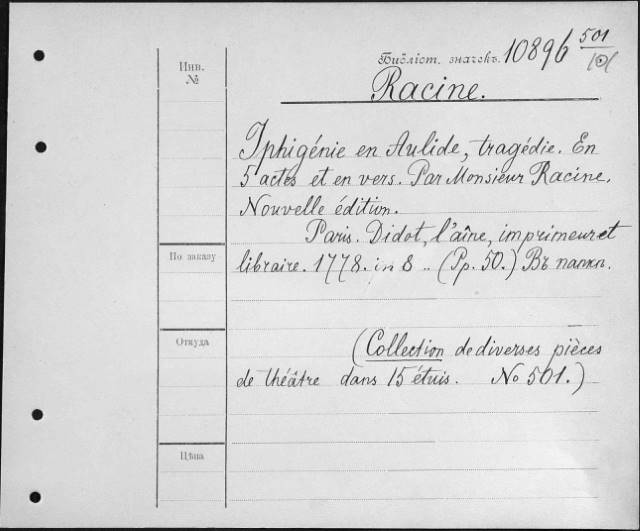 Инв.
№
Библіот. значекъ. 10896 501
Racine.
Iphigénie en Aulide, tragédie. En
5 actes et en vers. Par Monsieur Racine.
Nouvelle édition.
Paris. Didot, l'aîne, imprimeur et
По заказу
libraire. 1778. in 8 .. (Pp. 50.) Въ папкѣ.
Откуда
(Collection de diverses pièces
de théâtre dans 15 étuis. No 501.)
Цѣна